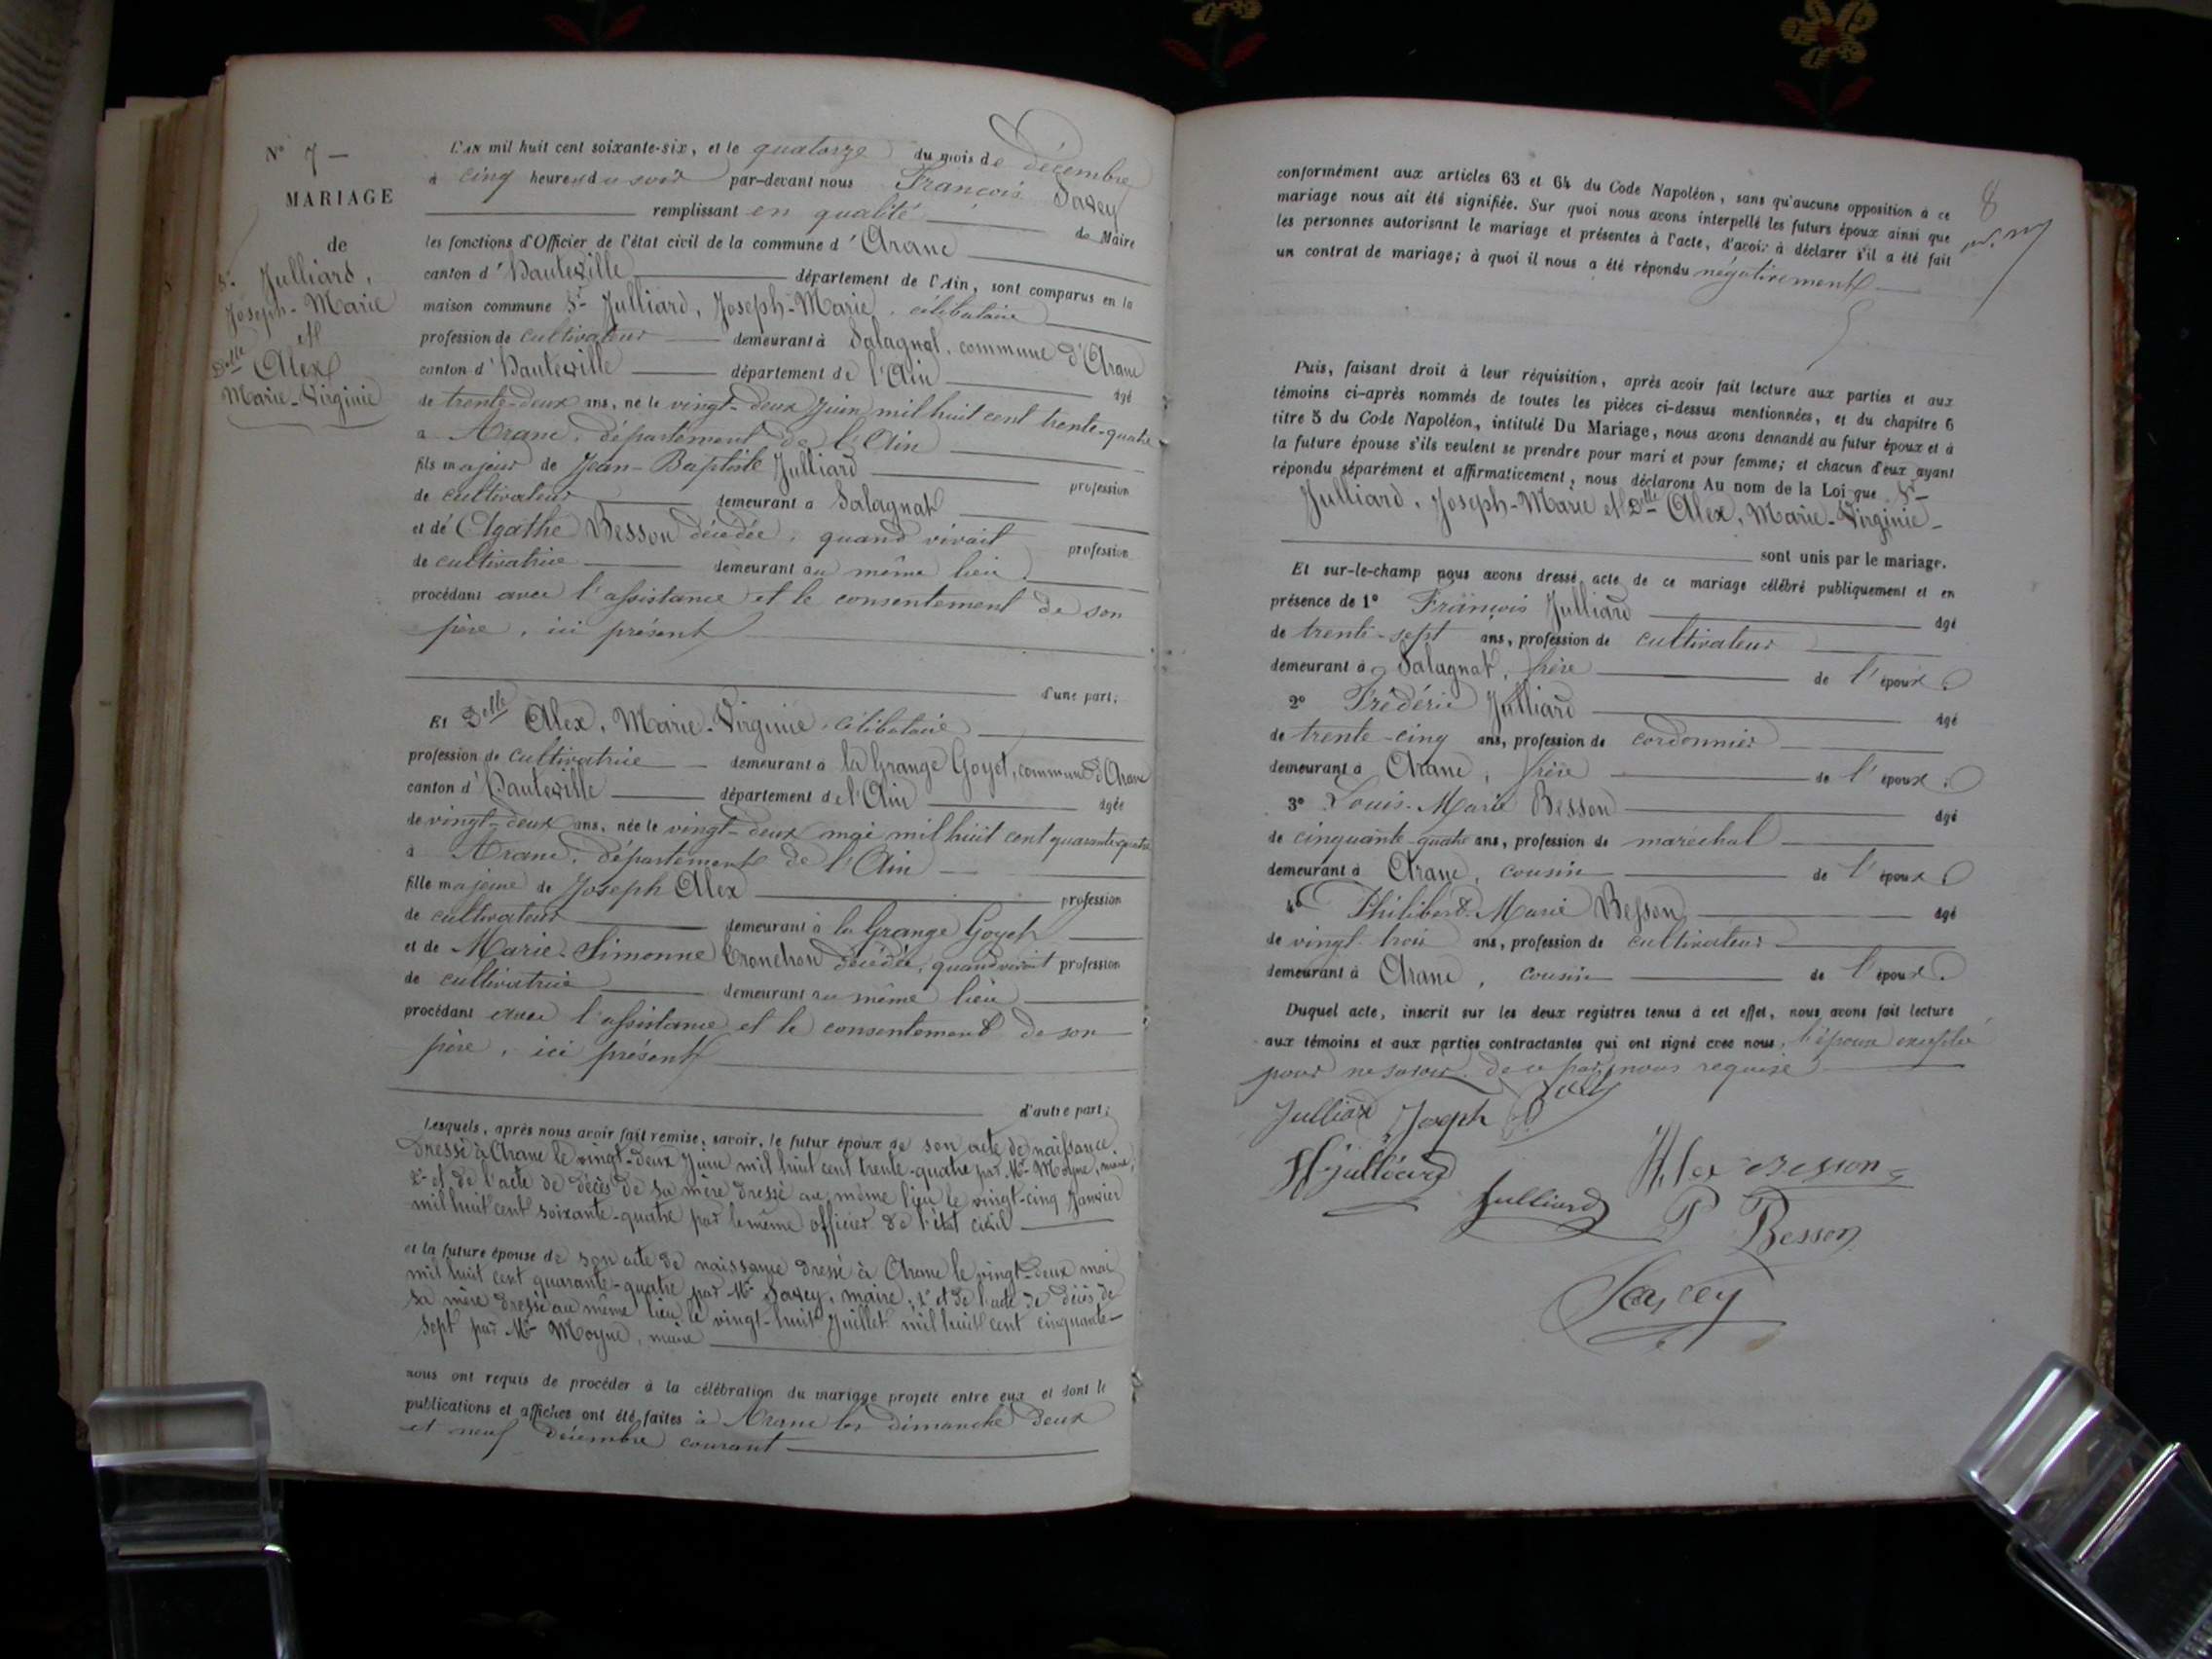 N° 7 —
MARIAGE
de
Sr Julliard,
Joseph-Marie
et
Delle Alex
Marie-Virginie
L'AN mil huit cent soixante-six, et le quatorze du mois de décembre
à cinq heures du soir par-devant nous François Savey
remplissant en qualité de Maire
les fonctions d'Officier de l'état civil de la commune d'Aranc
canton d'Hauteville département de l'Ain, sont comparus en la
maison commune Sr Julliard, Joseph-Marie, célibataire
profession de cultivateur demeurant à Salagnat, commune d'Aranc
canton d'Hauteville département de l'Ain âgé
de trente-deux ans, né le vingt-deux Juin mil huit cent trente-quatre
à Aranc, département de l'Ain
fils majeur de Jean-Baptiste Julliard profession
de cultivateur demeurant à Salagnat
et de Agathe Besson décédée, quand vivait profession
de cultivatrice demeurant au même lieu
procédant avec l'assistance et le consentement de son
père, ici présent
d'une part;
Et Delle Alex, Marie-Virginie, célibataire
profession de cultivatrice demeurant à la Grange Goyet, commune d'Aranc
canton d'Hauteville département de l'Ain âgée
de vingt-deux ans, née le vingt-deux mai mil huit cent quarante-quatre
à Aranc, département de l'Ain
fille majeure de Joseph Alex profession
de cultivateur demeurant à la Grange Goyet
et de Marie-Simonne Tronchon décédée, quand vivait profession
de cultivatrice demeurant au même lieu
procédant avec l'assistance et le consentement de son
père, ici présent
d'autre part;
Lesquels, après nous avoir fait remise, savoir, le futur époux de son acte de naissance
dressé à Aranc le vingt-deux Juin mil huit cent trente-quatre par Mr Moyne, maire;
2° et de l'acte de décès de sa mère dressé au même lieu le vingt-cinq Janvier
mil huit cent soixante-quatre par le même officier de l'état civil
et la future épouse de son acte de naissance dressé à Aranc le vingt-deux mai
mil huit cent quarante-quatre par Mr Savey, maire; 2° et de l'acte de décès de
sa mère dressé au même lieu le vingt-huit Juillet mil huit cent cinquante-
sept par Mr Moyne, maire
nous ont requis de procéder à la célébration du mariage projeté entre eux et dont les
publications et affiches ont été faites à Aranc les dimanche deux
et neuf décembre courant
8
conformément aux articles 63 et 64 du Code Napoléon, sans qu'aucune opposition à ce
mariage nous ait été signifiée. Sur quoi nous avons interpellé les futurs époux ainsi que
les personnes autorisant le mariage et présentes à l'acte, d'avoir à déclarer s'il a été fait
un contrat de mariage; à quoi il nous a été répondu négativement
Puis, faisant droit à leur réquisition, après avoir fait lecture aux parties et aux
témoins ci-après nommés de toutes les pièces ci-dessus mentionnées, et du chapitre 6
titre 5 du Code Napoléon, intitulé Du Mariage, nous avons demandé au futur époux et à
la future épouse s'ils veulent se prendre pour mari et pour femme; et chacun d'eux ayant
répondu séparément et affirmativement, nous déclarons Au nom de la Loi que Sr
Julliard, Joseph-Marie et Delle Alex, Marie-Virginie
sont unis par le mariage.
Et sur-le-champ nous avons dressé acte de ce mariage célébré publiquement et en
présence de 1° François Julliard âgé
de trente-sept ans, profession de cultivateur
demeurant à Salagnat, frère de l'époux.
2° Frédéric Julliard âgé
de trente-cinq ans, profession de cordonnier
demeurant à Aranc, frère de l'époux.
3° Louis-Marie Besson âgé
de cinquante-quatre ans, profession de maréchal
demeurant à Aranc, cousin de l'époux
4° Philibert-Marie Besson âgé
de vingt-trois ans, profession de cultivateur
demeurant à Aranc, cousin de l'époux.
Duquel acte, inscrit sur les deux registres tenus à cet effet, nous avons fait lecture
aux témoins et aux parties contractantes qui ont signé avec nous,
pour ne savoir de ce par nous requise
Julliard Joseph
Julliard
Julliard
Besson
P Besson
Savey